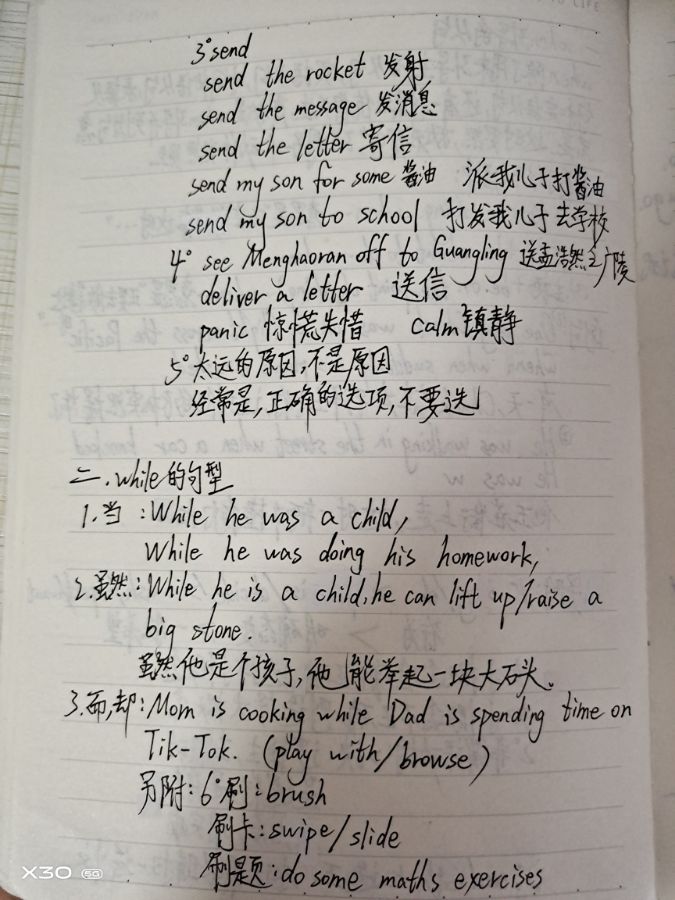 3°send
send the rocket 发射
send the message 发消息
send the letter 寄信
send my son for some 酱油 派我儿子打酱油
send my son to school 打发我儿子去学校
4° see Menghaoran off to Guangling 送孟浩然之广陵
deliver a letter 送信
panic 惊慌失惜 calm 镇静
5° 太远的原因,不是原因
经常是,正确的选项,不要选
二.while的句型
1.当:While he was a child,
While he was doing his homework,
2.虽然:While he is a child,he can lift up/raise a
big stone.
虽然他是个孩子,他能举起一块大石头。
3.而,却:Mom is cooking while Dad is spending time on
Tik-Tok. (play with/browse)
另附:6°刷:brush
刷卡:swipe/slide
刷题:do some maths exercises
X30 5G